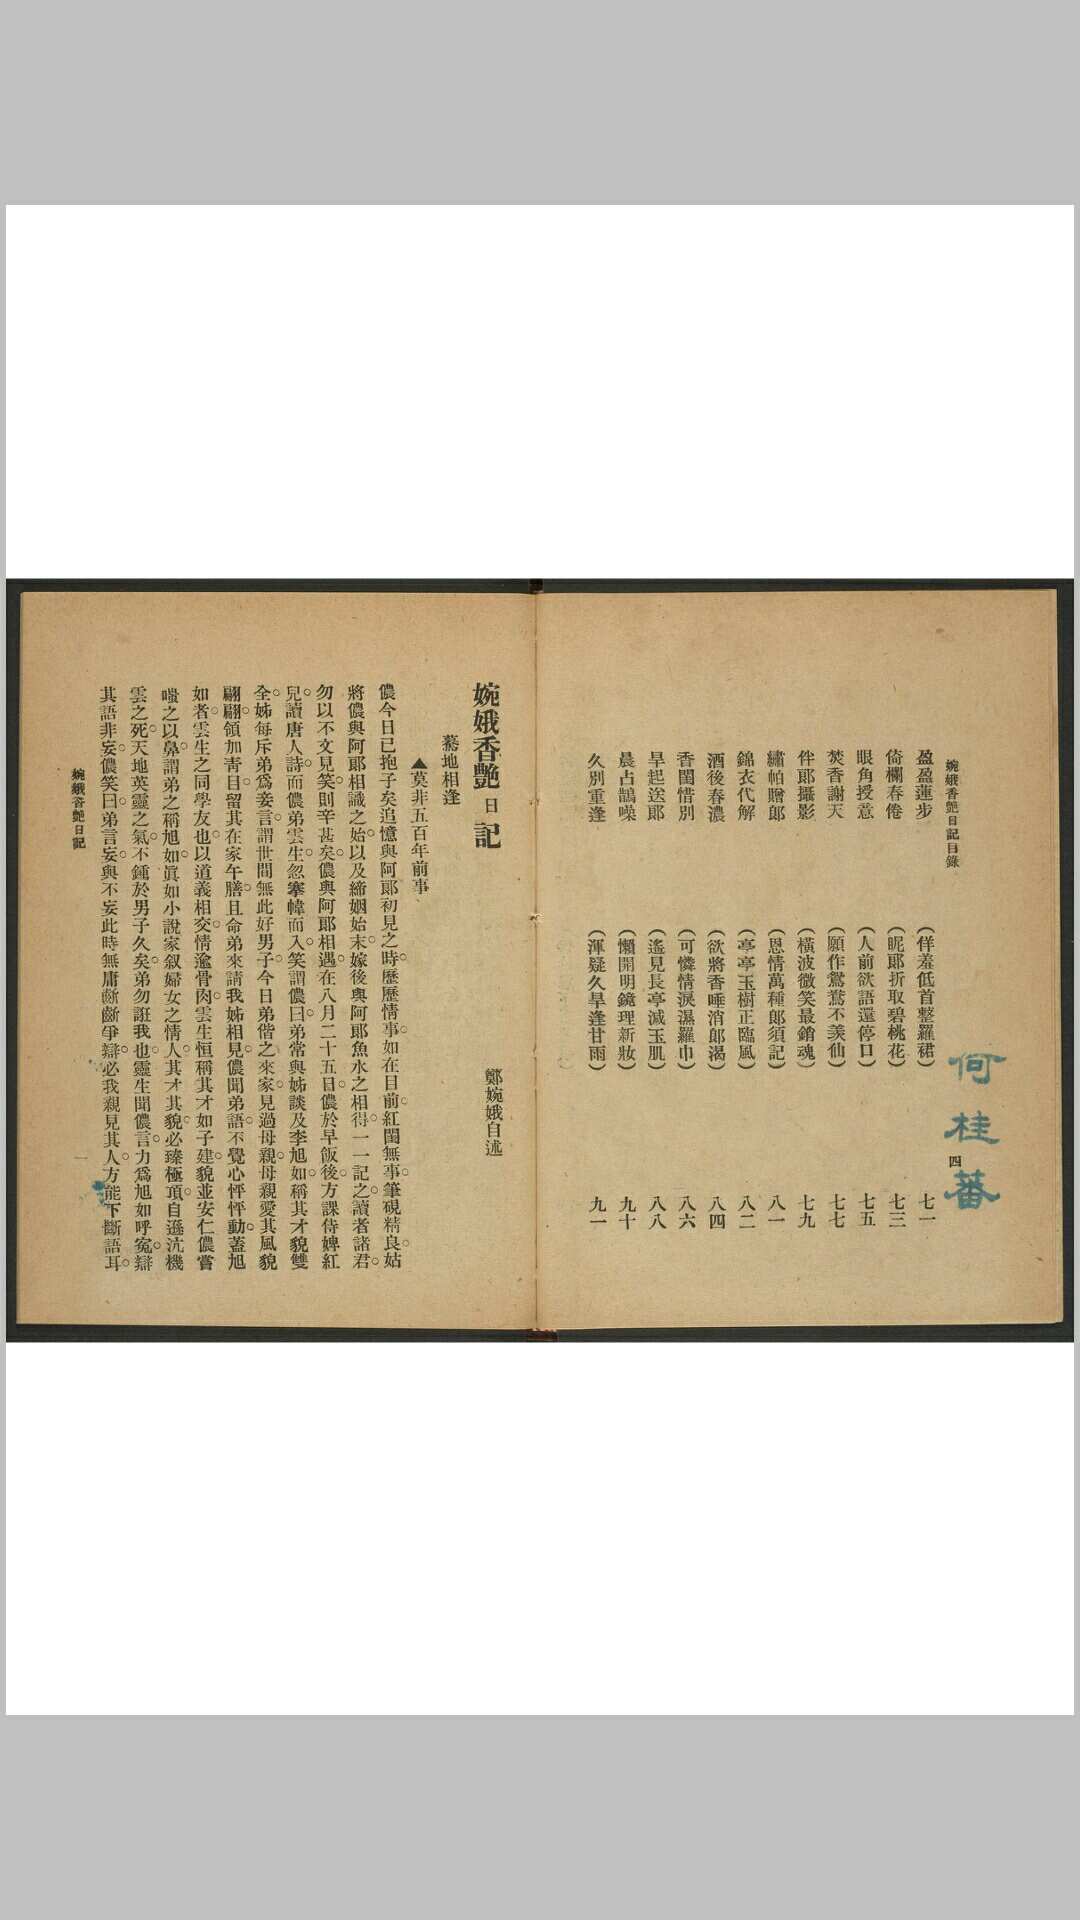 婉娥香艷日記目錄
盈盈蓮步 (佯羞低首整羅裙) 七一
倚欄春倦 (昵郞折取碧桃花) 七三
眼角授意 (人前欲語還停口) 七五
焚香謝天 (願作鴛鴦不羨仙) 七七
伴郞攝影 (橫波微笑最銷魂) 七九
繡帕贈郞 (恩情萬種郞須記) 八一
錦衣代解 (亭亭玉樹正臨風) 八二
酒後春濃 (欲將香唾消郞渴) 八四
香閨惜別 (可憐情淚濕羅巾) 八六
早起送郞 (遙見長亭減玉肌) 八八
晨占鵲噪 (懶開明鏡理新妝) 九十
久別重逢 (渾疑久旱逢甘雨) 九一
四
何桂蕃
婉娥香艷日記
鄭婉娥自述
驀地相逢
▲莫非五百年前事
儂今日已抱子矣追憶與阿郞初見之時。歷歷情事。如在目前。紅閨無事。筆硯精良。姑
將儂與阿郞相識之始。以及締姻始末。嫁後與阿郞魚水之相得。一一記之。讀者諸君。
勿以不文見笑。則幸甚矣。儂與阿郞相遇。在八月二十五日。儂於早飯後。方課侍婢紅
兒。讀唐人詩。而儂弟雲生。忽搴幃而入。笑謂儂曰。弟常與姊談及李旭如。稱其才貌雙
全。姊每斥弟爲妄言。謂世間無此好男子。今日弟偕之來家。見過母親。母親愛其風貌
翩翩。頷加靑目。留其在家午膳。且命弟來請我姊相見。儂聞弟語。不覺心怦怦動。蓋旭
如者。雲生之同學友也。以道義相交。情逾骨肉。雲生恒稱其才如子建。貌並安仁。儂嘗
嗤之以鼻。謂弟之稱旭如。眞如小說家叙婦女之情人。其才其貌。必臻極頂。自遜沆機
雲之死。天地英靈之氣。不鍾於男子久矣。弟勿誑我也。靈生聞儂言。力爲旭如呼寃。辯
其語非妄。儂笑曰。弟言妄與不妄。此時無庸齗齗爭辯。必我親見其人。方能下斷語耳。
婉娥香艷日記
一